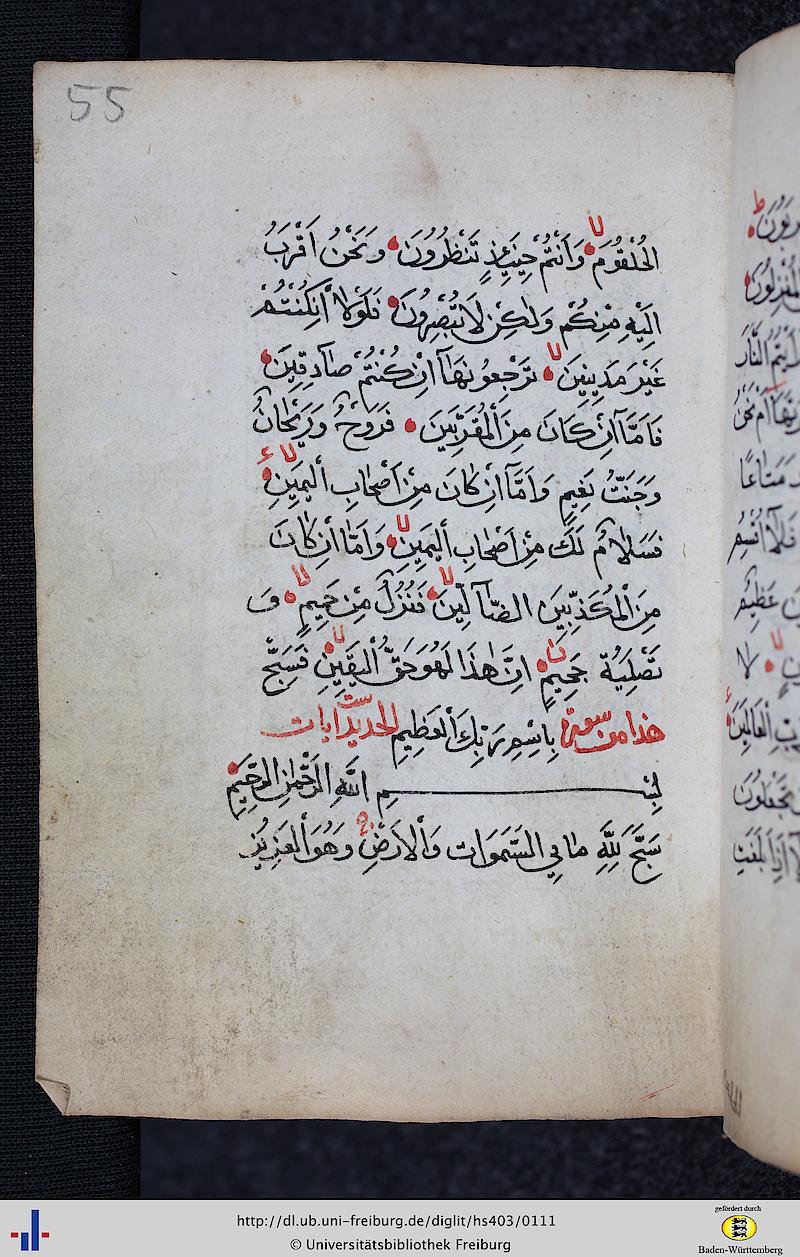 55
الْحُلْقُومَ وَاَنْتُمْ حِينَئِذٍ تَنْظُرُونَ وَنَحْنُ اَقْرَبُ
اِلَيْهِ مِنْكُمْ وَلٰكِنْ لَا تُبْصِرُونَ فَلَوْلَا اِنْ كُنْتُمْ
غَيْرَ مَدِينِينَ تَرْجِعُونَهَآ اِنْ كُنْتُمْ صَادِقِينَ
فَاَمَّآ اِنْ كَانَ مِنَ الْمُقَرَّبِينَ فَرَوْحٌ وَرَيْحَانٌ
وَجَنَّتُ نَعِيمٍ وَاَمَّآ اِنْ كَانَ مِنْ اَصْحَابِ الْيَمِينِ
فَسَلَامٌ لَكَ مِنْ اَصْحَابِ الْيَمِينِ وَاَمَّا اِنْ كَانَ
مِنَ الْمُكَذِّبِينَ الضَّآلِّينَ فَنُزُلٌ مِنْ حَمِيمٍ وَ
تَصْلِيَةُ جَحِيمٍ اِنَّ هٰذَا لَهُوَ حَقُّ الْيَقِينِ فَسَبِّحْ
هذا من سورة بِاسْمِ رَبِّكَ الْعَظِيمِ الحديد ست ايات
بِسْمِ اللّٰهِ الرَّحْمٰنِ الرَّحِيمِ
سَبَّحَ لِلّٰهِ مَا فِي السَّمَوَاتِ وَالْاَرْضِ وَهُوَ الْعَزِيزُ
http://dl.ub.uni-freiburg.de/diglit/hs403/0111
© Universitätsbibliothek Freiburg
gefördert durch
Baden-Württemberg